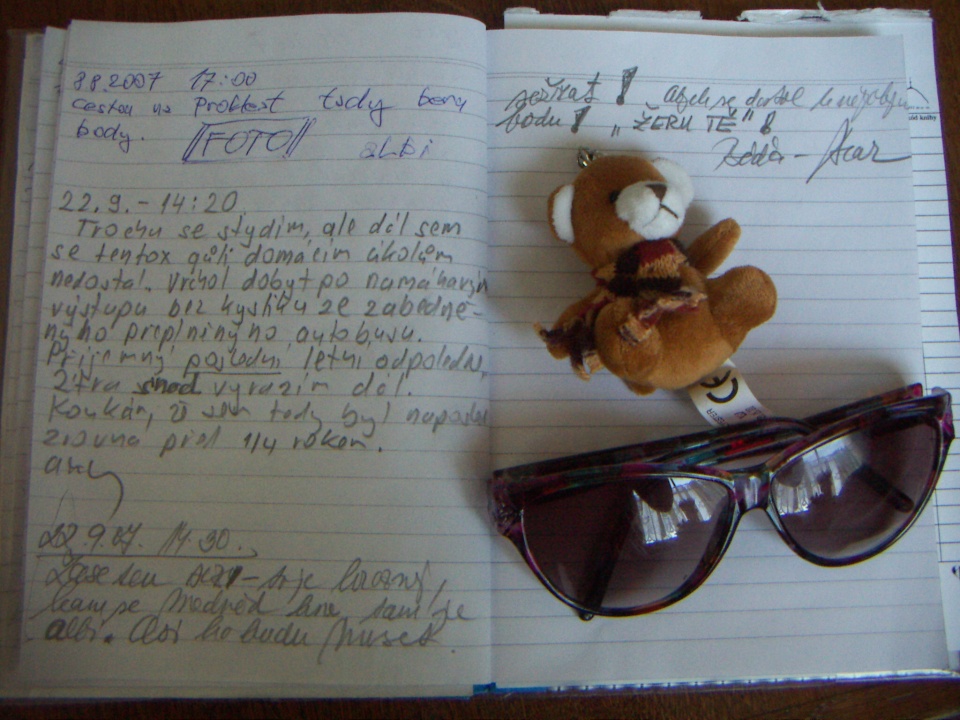 8.8.2007 17:00
cestou na Problest tady beru
body.
FOTO
albi
22.9.-14:20
Trochu se stydím, ale dál sem
se tentox qůli domácím úkolům
nedostal. Vrchol dobyt po namáhavým
výstupu bez kyslíku ze zabedně-
nýho přeplněnýho autobusu.
Příjemný poslední letní odpoledne,
zítra snad vyrazím dál.
Koukám, že sem tady byl naposled
zrovna před 1/4 rokem.
22.9.07. 14.30.,
Zase sem - je hrozný,
kam se Medvěd hne, tam je
albi. Asi ho budu muset
sežrat! abych se dostal k nějakýmu
bodu! „ŽERU TĚ"!
CE